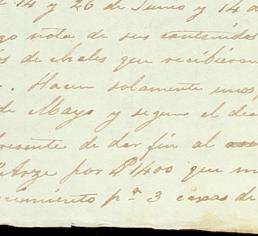 14 y 26 de Junio y 14 d
go nota de sus contenidos
s de chales que recibieron
. Hacen solamente unos
de Mayo y segun el des
resente de dar fin al
Arze por $1400 que m
cimiento pª 3 cajas de